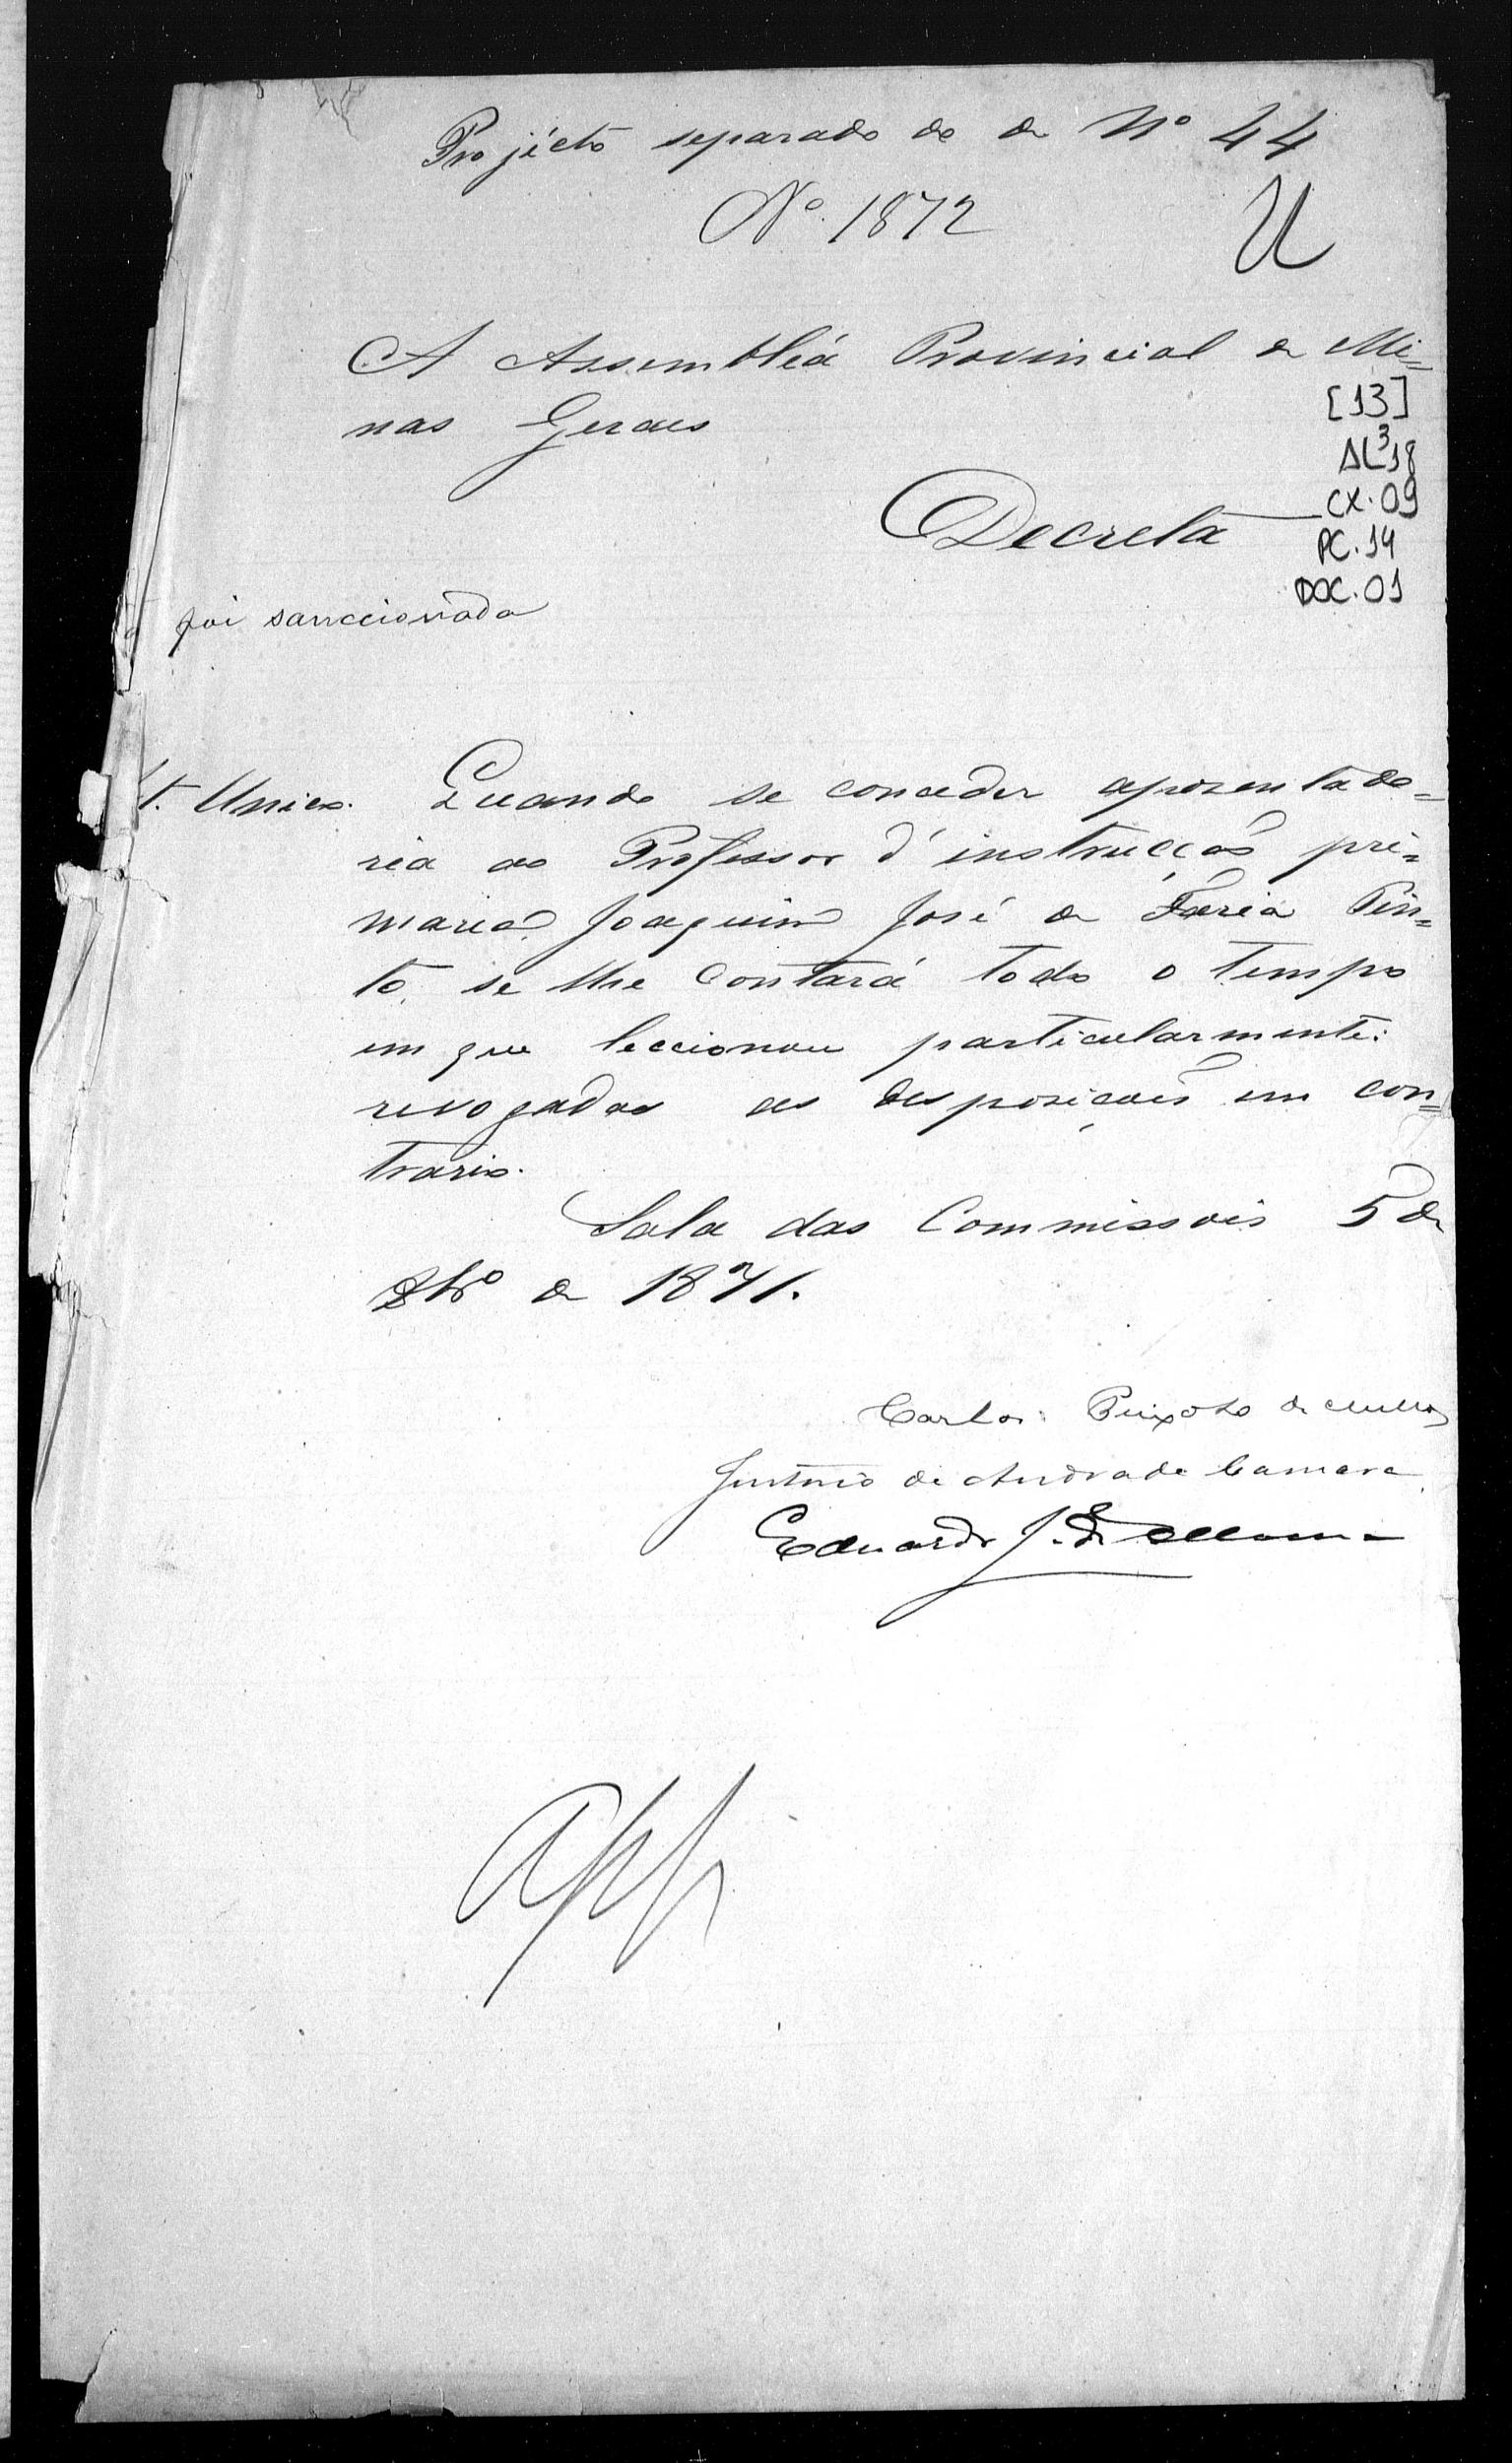 Projécto separado do de Nº 44
Nº. 1872
U
A Assembléa Provincial de Mi=
nas Geraes
[13]
AL³18
CX. 09
PC. 14
DOC. 01
Decreta
foi sanccionada
t. Unico. Quando se conceder aposentado=
ria ao Professor d'instrucção pri=
maria, Joaquim José de Faria Pin=
to, se lhe contará todo o tempo
em que leccionou particularmente:
revogadas as desposiçoẽs em con=
trario.
Sala das Commissoẽs 5 de
de 1871.
Carlos Peixoto de Mello
Antonio de Andrade Camara
Eduardo J. de